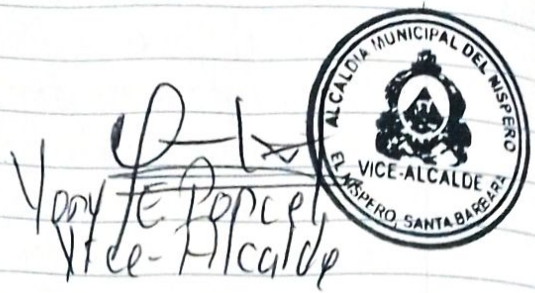 ALCALDIA MUNICIPAL DEL NISPERO
VICE-ALCALDE
EL NISPERO, SANTA BARBARA
Yony E Poncel
Vice-Alcalde